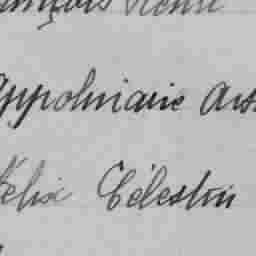 Henri
Appolinaire
Félix Célestin